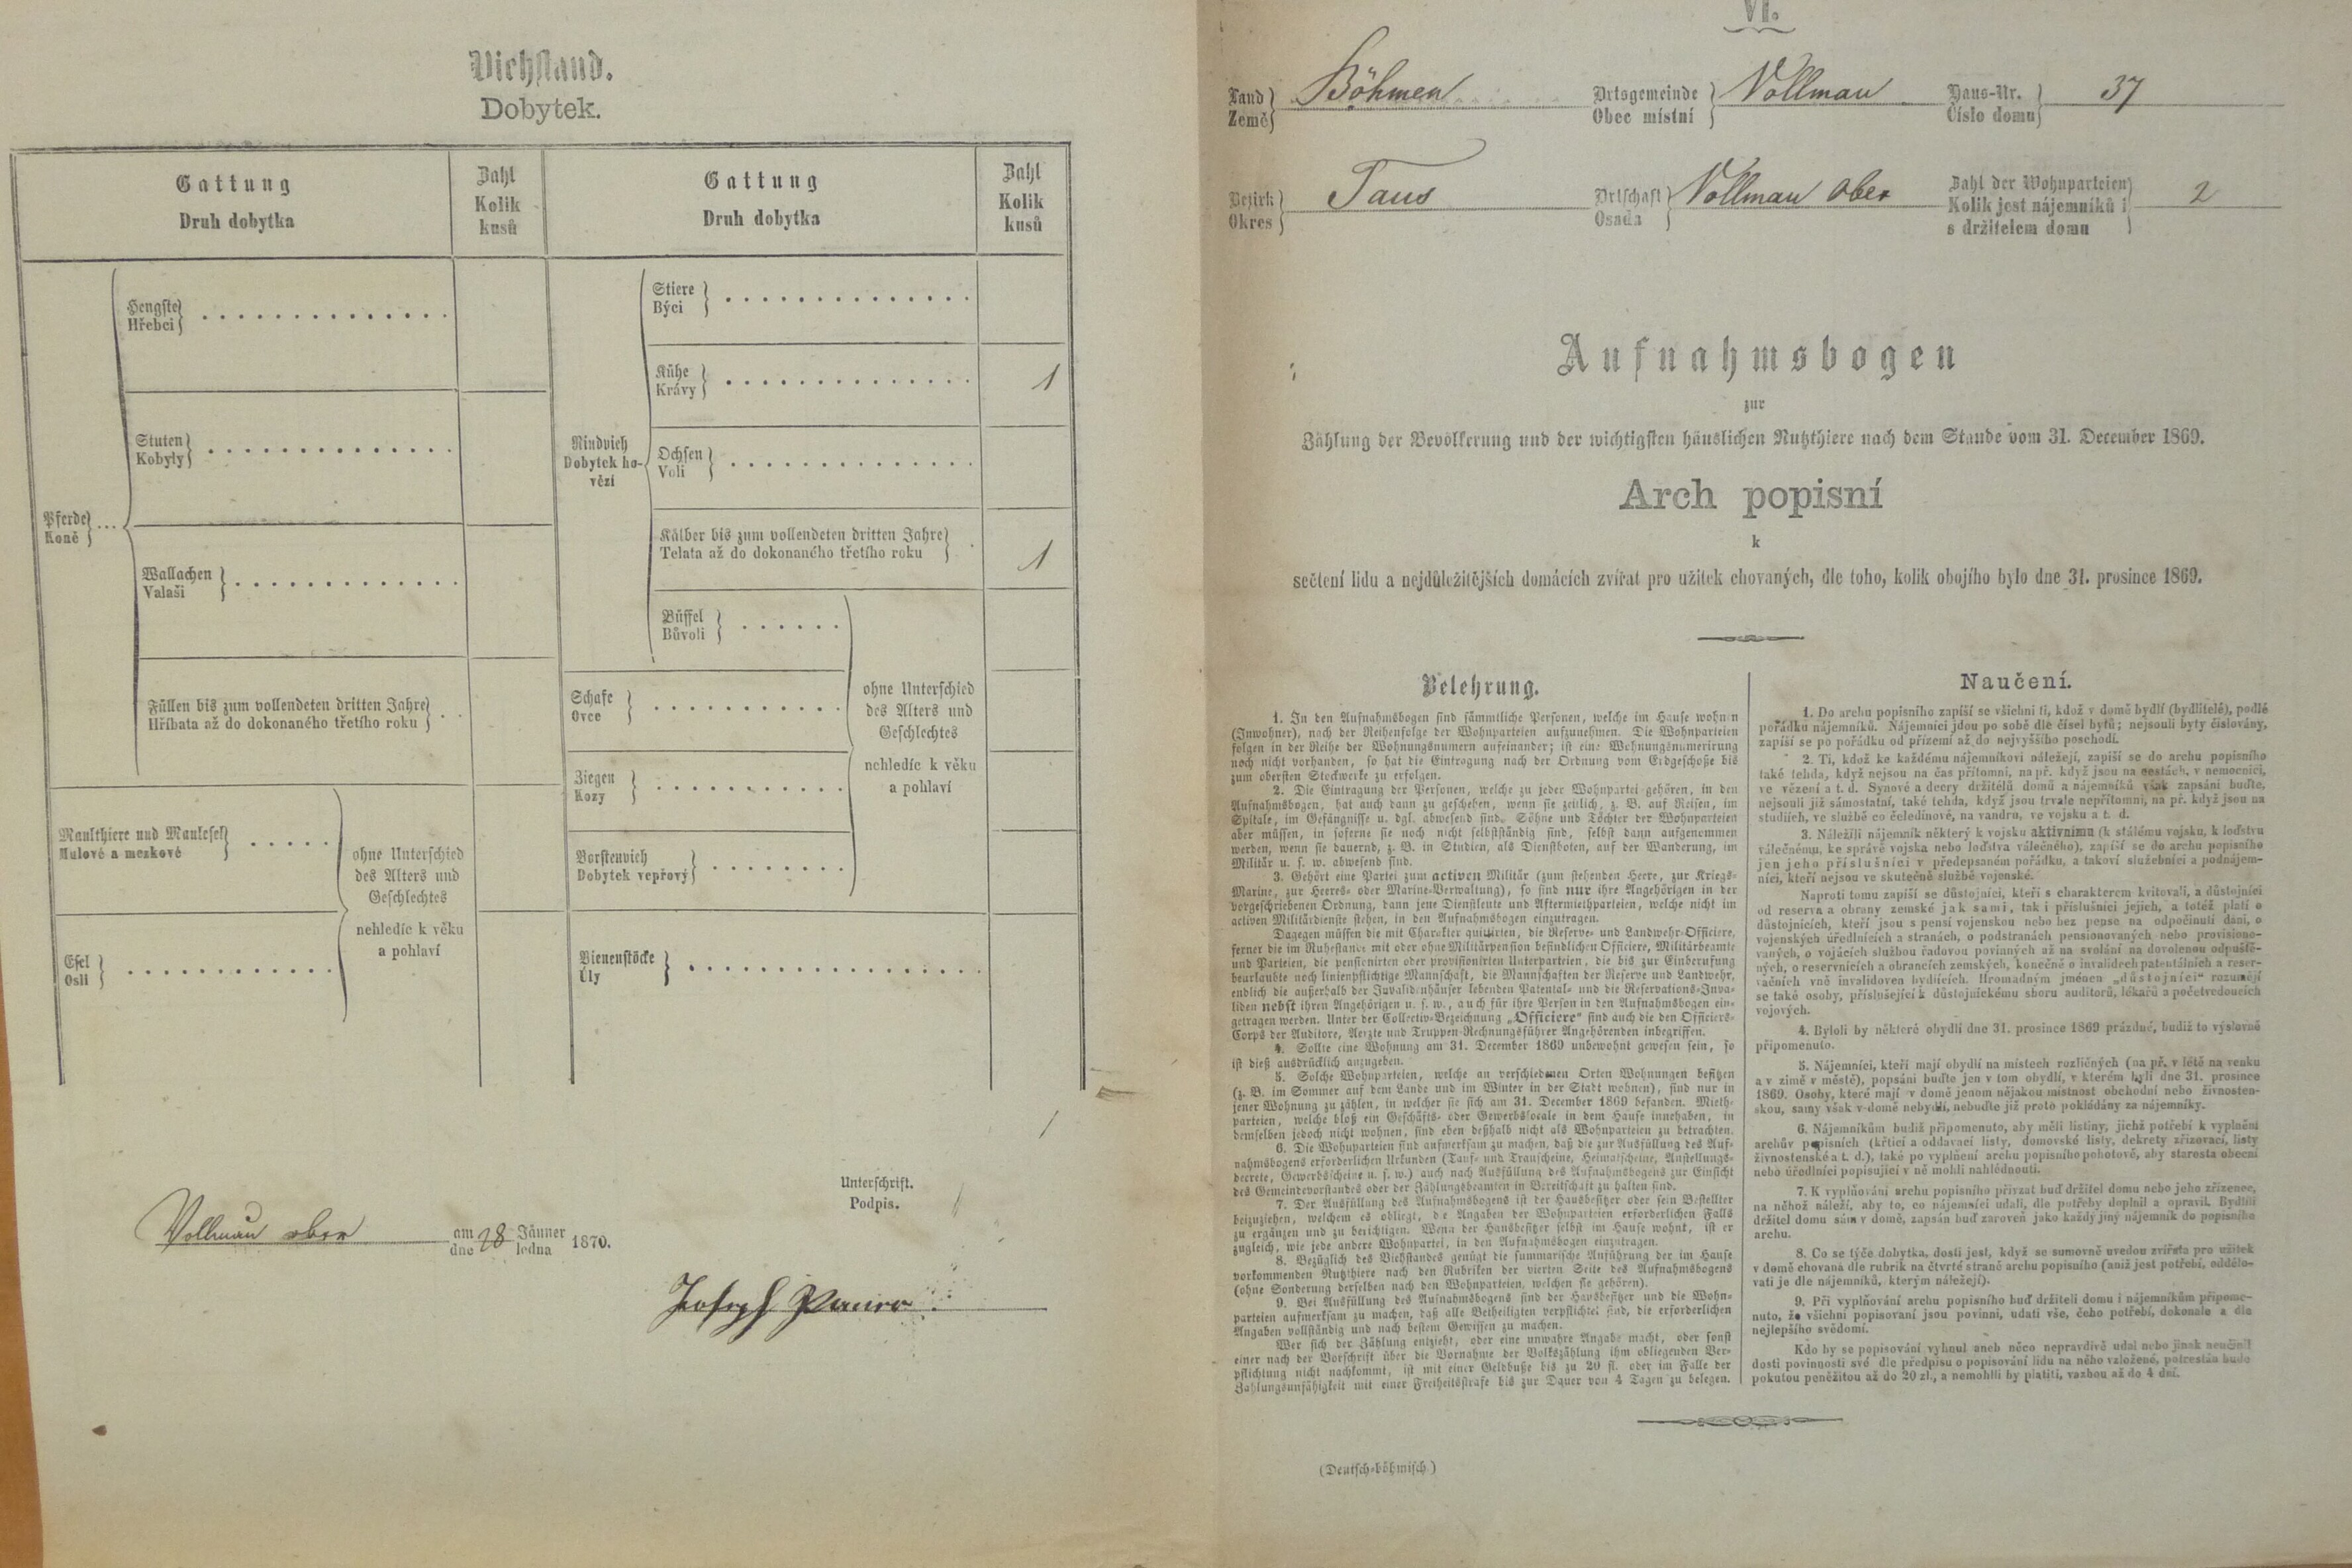 Viehstand.
Dobytek.
Gattung
Druh dobytka
Zahl
Kolik
kusů
Gattung
Druh dobytka
Zahl
Kolik
kusů
Pferde
Koně
Hengste
Hřebci
Stuten
Kobyly
Wallachen
Valaši
Füllen bis zum vollendeten dritten Jahre
Hříbata až do dokonaného třetího roku
Maulthiere und Maulesel
Mulové a mezkové
Esel
Osli
ohne Unterschied
des Alters und
Geschlechtes
nehledíc k věku
a pohlaví
Rindvieh
Dobytek ho-
vězí
Stiere
Býci
Kühe
Krávy
1
Ochsen
Voli
Kälber bis zum vollendeten dritten Jahre
Telata až do dokonaného třetího roku
1
Büffel
Bůvoli
Schafe
Ovce
Ziegen
Kozy
Borstenvieh
Dobytek vepřový
ohne Unterschied
des Alters und
Geschlechtes
nehledíc k věku
a pohlaví
Bienenstöcke
Úly
Unterschrift.
Podpis.
Vollmau ober am dne 28 Jänner ledna 1870.
Joseph
VI.
Land Země Böhmen Ortsgemeinde Obec místní Vollmau Haus-Nr. Číslo domu 37
Bezirk Okres Taus Ortschaft Osada Vollmau Ober Zahl der Wohnparteien Kolik jest nájemníků i s držitelem domu 2
Aufnahmsbogen
zur
Zählung der Bevölkerung und der wichtigsten häuslichen Nutzthiere nach dem Stande vom 31. December 1869.
Arch popisní
k
sečtení lidu a nejdůležitějších domácích zvířat pro užitek chovaných, dle toho, kolik obojího bylo dne 31. prosince 1869.
Belehrung.
1. In den Aufnahmsbogen sind sämmtliche Personen, welche im Hause wohnen
(Inwohner), nach der Reihenfolge der Wohnparteien aufzunehmen. Die Wohnparteien
folgen in der Reihe der Wohnungsnumern aufeinander; ist eine Wohnungsnumerirung
noch nicht vorhanden, so hat die Eintragung nach der Ordnung vom Erdgeschoße bis
zum obersten Stockwerke zu erfolgen.
2. Die Eintragung der Personen, welche zu jeder Wohnpartei gehören, in den
Aufnahmsbogen, hat auch dann zu geschehen, wenn sie zeitlich, z. B. auf Reisen, im
Spitale, im Gefängnisse u. dgl. abwesend sind. Söhne und Töchter der Wohnparteien
aber müssen, in soferne sie noch nicht selbstständig sind, selbst dann aufgenommen
werden, wenn sie dauernd, z. B. in Studien, als Dienstboten, auf der Wanderung, im
Militär u. s. w. abwesend sind.
3. Gehört eine Partei zum activen Militär (zum stehenden Heere, zur Kriegs-
Marine, zur Heeres- oder Marine-Verwaltung), so sind nur ihre Angehörigen in der
vorgeschriebenen Ordnung, dann jene Dienstleute und Aftermiethparteien, welche nicht im
activen Militärdienste stehen, in den Aufnahmsbogen einzutragen.
Dagegen müssen die mit Charakter quittirten, die Reserve- und Landwehr-Officiere,
ferner die im Ruhestande mit oder ohne Militärpension befindlichen Officiere, Militärbeamte
und Parteien, die pensionirten oder provisionirten Unterparteien, die bis zur Einberufung
beurlaubte noch linienpflichtige Mannschaft, die Mannschaften der Reserve und Landwehr,
endlich die außerhalb der Invalidenhäuser lebenden Patental- und die Reservations-Inva-
liden nebst ihren Angehörigen u. s. w., auch für ihre Person in den Aufnahmsbogen ein-
getragen werden. Unter der Collectiv-Bezeichnung „Officiere“ sind auch die den Officiers-
Corps der Auditore, Aerzte und Truppen-Rechnungsführer Angehörenden inbegriffen.
4. Sollte eine Wohnung am 31. December 1869 unbewohnt gewesen sein, so
ist dieß ausdrücklich anzugeben.
5. Solche Wohnparteien, welche an verschiedenen Orten Wohnungen besitzen
(z. B. im Sommer auf dem Lande und im Winter in der Stadt wohnen), sind nur in
jener Wohnung zu zählen, in welcher sie sich am 31. December 1869 befanden. Mieth-
parteien, welche bloß ein Geschäfts- oder Gewerbslocale in dem Hause innehaben, in
demselben jedoch nicht wohnen, sind eben deßhalb nicht als Wohnparteien zu betrachten.
6. Die Wohnparteien sind aufmerksam zu machen, daß die zur Ausfüllung des Auf-
nahmsbogens erforderlichen Urkunden (Tauf- und Trauscheine, Heimatscheine, Anstellungs-
decrete, Gewerbsscheine u. s. w.) auch nach Ausfüllung des Aufnahmsbogens zur Einsicht
des Gemeindevorstandes oder der Zählungsbeamten in Bereitschaft zu halten sind.
7. Der Ausfüllung des Aufnahmsbogens ist der Hausbesitzer oder sein Bestellter
beizuziehen, welchem es obliegt, die Angaben der Wohnparteien erforderlichen Falls
zu ergänzen und zu berichtigen. Wenn der Hausbesitzer selbst im Hause wohnt, ist er
zugleich, wie jede andere Wohnpartei, in den Aufnahmsbogen einzutragen.
8. Bezüglich des Viehstandes genügt die summarische Anführung der im Hause
vorkommenden Nutzthiere nach den Rubriken der vierten Seite des Aufnahmsbogens
(ohne Sonderung derselben nach den Wohnparteien, welchen sie gehören).
9. Bei Ausfüllung des Aufnahmsbogens sind der Hausbesitzer und die Wohn-
parteien aufmerksam zu machen, daß alle Betheiligten verpflichtet sind, die erforderlichen
Angaben vollständig und nach bestem Gewissen zu machen.
Wer sich der Zählung entzieht, oder eine unwahre Angabe macht, oder sonst
einer nach der Vorschrift über die Vornahme der Volkszählung ihm obliegenden Ver-
pflichtung nicht nachkommt, ist mit einer Geldbuße bis zu 20 fl. oder im Falle der
Zahlungsunfähigkeit mit einer Freiheitsstrafe bis zur Dauer von 4 Tagen zu belegen.
Naučení.
1. Do archu popisního zapíší se všichni ti, kdož v domě bydlí (bydlitelé), podlé
pořádku nájemníků. Nájemníci jdou po sobě dle čísel bytů; nejsouli byty číslovány,
zapíší se po pořádku od přízemí až do nejvyššího poschodí.
2. Ti, kdož ke každému nájemníkovi náležejí, zapíší se do archu popisního
také tehda, když nejsou na čas přítomni, na př. když jsou na cestách, v nemocnici,
ve vězení a t. d. Synové a dcery držitelů domů a nájemníků však zapsáni buďte,
nejsouli již samostatní, také tehda, když jsou trvale nepřítomni, na př. když jsou na
studiích, ve službě co čeledínové, na vandru, ve vojsku a t. d.
3. Náležíli nájemník některý k vojsku aktivnímu (k stálému vojsku, k loďstvu
válečnému, ke správě vojska nebo loďstva válečného), zapíší se do archu popisního
jen jeho příslušníci v předepsaném pořádku, a takoví služebníci a podnájem-
níci, kteří nejsou ve skutečné službě vojenské.
Naproti tomu zapíší se důstojníci, kteří s charakterem kvitovali, a důstojníci
od reserva a obrany zemské jak sami, tak i příslušníci jejich, a totéž platí o
důstojnících, kteří jsou s pensí vojenskou nebo bez pense na odpočinutí dáni, o
vojenských úřednících a stranách, o podstranách pensionovaných nebo provisiono-
vaných, o vojácích službou řadovou povinných až na svolání na dovolenou odpuště-
ných, o reservnících a obrancích zemských, konečně o invalidech patentálních a reser-
vačních vně invalidoven bydlících. Hromadným jménem „důstojníci“ rozumějí
se také osoby, příslušející k důstojnickému sboru auditorů, lékařů a početvedoucích
vojových.
4. Byloli by některé obydlí dne 31. prosince 1869 prázdné, budiž to výslovně
připomenuto.
5. Nájemníci, kteří mají obydlí na místech rozličných (na př. v létě na venku
a v zimě v městě), popsáni buďte jen v tom obydlí, v kterém byli dne 31. prosince
1869. Osoby, které mají v domě jenom nějakou místnost obchodní nebo živnosten-
skou, samy však v domě nebydlí, nebuďte již proto pokládány za nájemníky.
6. Nájemníkům budiž připomenuto, aby měli listiny, jichž potřebí k vyplnění
archův popisních (křticí a oddavací listy, domovské listy, dekrety zřizovací, listy
živnostenské a t. d.), také po vyplnění archu popisního pohotově, aby starosta obecní
nebo úředlníci popisující v ně mohli nahlédnouti.
7. K vyplňování archu popisního přivzat buď držitel domu nebo jeho zřízenec,
na něhož náleží, aby to, co nájemníci udali, dle potřeby doplnil a opravil. Bydlíli
držitel domu sám v domě, zapsán buď zároveň jako každý jiný nájemník do popisního
archu.
8. Co se týče dobytka, dosti jest, když se sumovně uvedou zvířata pro užitek
v domě chovaná dle rubrik na čtvrté straně archu popisního (aniž jest potřebí, oddělo-
vati je dle nájemníků, kterým náležejí).
9. Při vyplňování archu popisního buď držiteli domu i nájemníkům připome-
nuto, že všichni popisovaní jsou povinni, udati vše, čeho potřebí, dokonale a dle
nejlepšího svědomí.
Kdo by se popisování vyhnul aneb něco nepravdivě udal nebo jinak neučinil
dosti povinnosti své dle předpisu o popisování lidu na něho vzložené, potrestán bude
pokutou peněžitou až do 20 zl., a nemohlli by platiti, vazbou až do 4 dní.
(Deutsch-böhmisch)